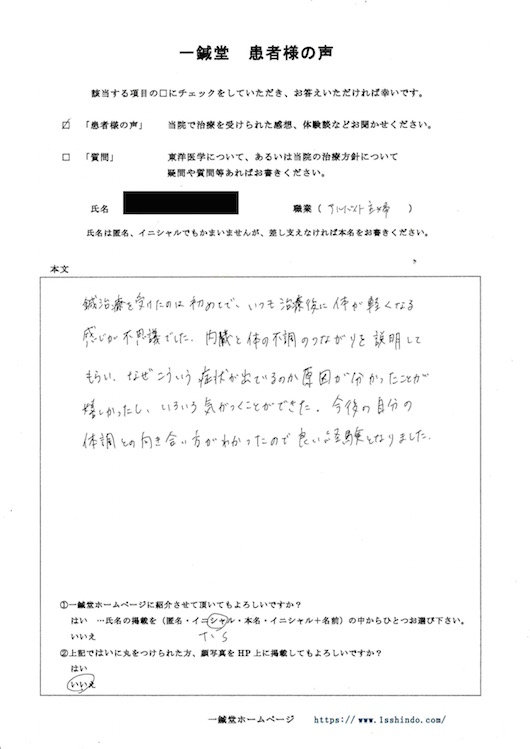 一鍼堂 患者様の声
該当する項目の□にチェックをしていただき、お答えいただければ幸いです。
☑ 「患者様の声」 当院で治療を受けられた感想、体験談などお聞かせください。
□ 「質問」 東洋医学について、あるいは当院の治療方針について
疑問や質問等あればお書きください。
氏名 職業（アルバイト主婦）
氏名は匿名、イニシャルでもかまいませんが、差し支えなければ本名をお書きください。
本文
鍼治療を受けたのは初めてで、いつも治療後に体が軽くなる
感じが不思議でした。内臓と体の不調のつながりを説明して
もらい、なぜこういう症状が出でるのか原因が分かったことが
嬉しかったし、いろいろ気がつくことができた。今後の自分の
体調との向き合い方がわかったので良い経験となりました。
①一鍼堂ホームページに紹介させて頂いてもよろしいですか？
はい …氏名の掲載を（匿名・イニシャル・本名・イニシャル＋名前）の中からひとつお選び下さい。
いいえ T、S
②上記ではいに丸をつけられた方、顔写真をHP上に掲載してもよろしいですか？
はい
いいえ
一鍼堂ホームページ https://www.1sshindo.com/